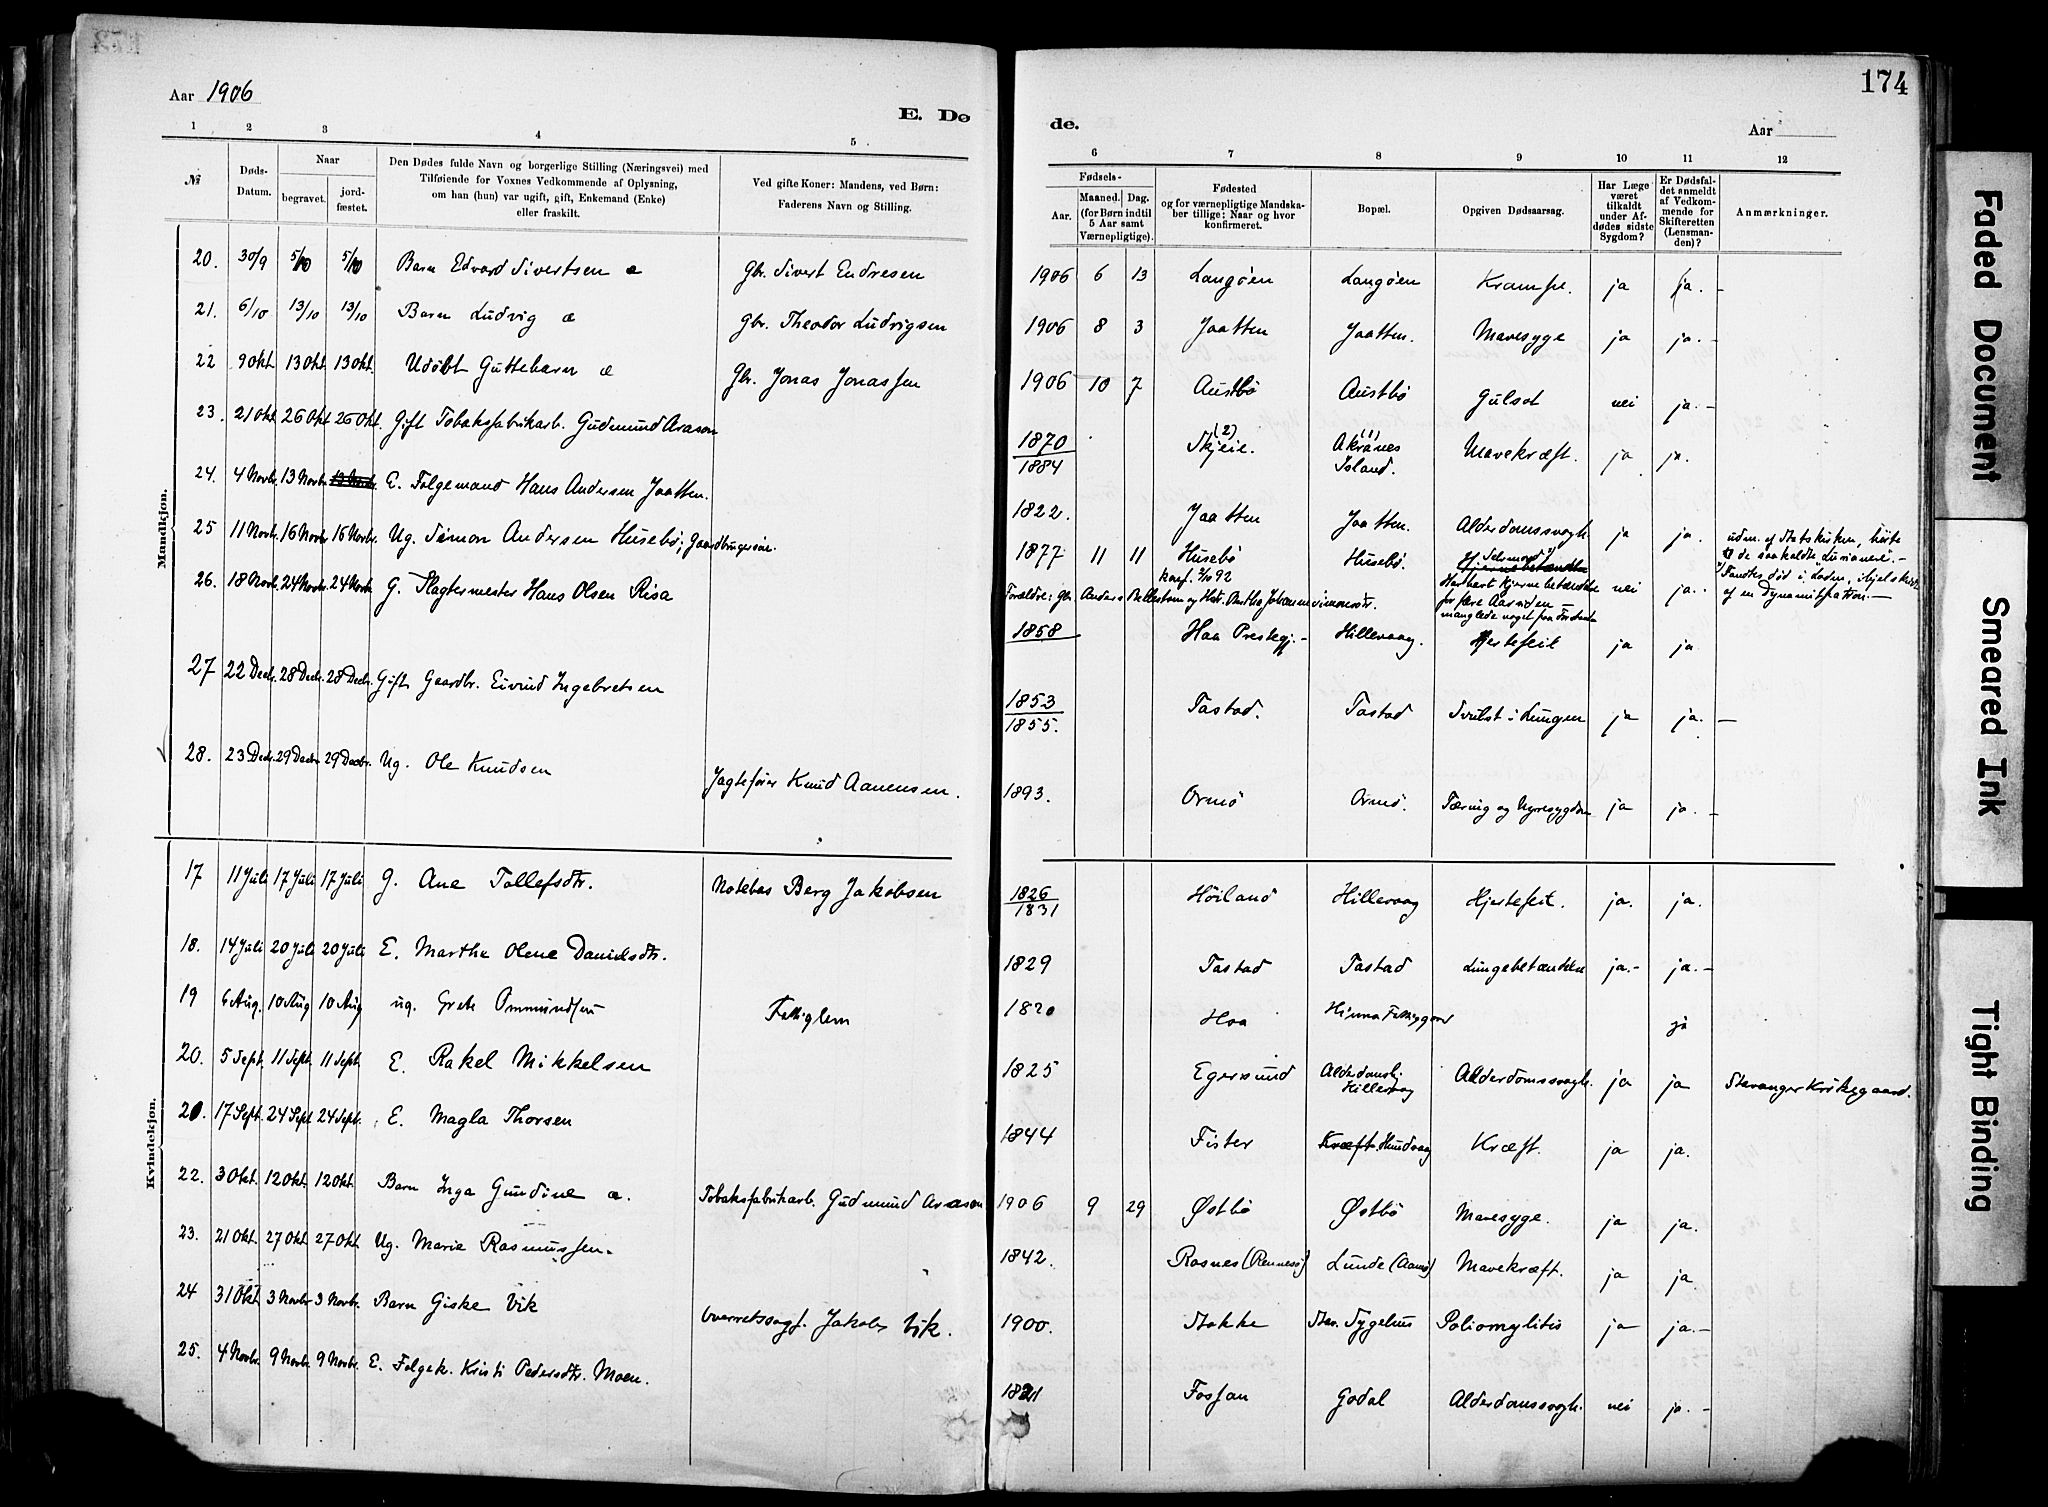 Aar 1906
E. Dø
de.
Aar
174
1 2 3 4 5
6 7 8 9 10 11 12
№
Døds-Datum.
Naar
begravet.
jord-fæstet.
Den Dødes fulde Navn og borgerlige Stilling (Næringsvei) med
Tilføiende for Voxnes Vedkommende af Oplysning,
om han (hun) var ugift, gift, Enkemand (Enke)
eller fraskilt.
Ved gifte Koner: Mandens, ved Børn:
Faderens Navn og Stilling.
Fødsels-
Aar.
Maaned. Dag.
(for Børn indtil
5 Aar samt
Værnepligtige).
Fødested
og for værnepligtige Mandska-
ber tillige: Naar og hvor
konfirmeret.
Bopæl.
Opgiven Dødsaarsag.
Har Læge
været
tilkaldt
under Af-
dødes sidste
Sygdom?
Er Dødsfal-
det anmeldt
af Vedkom-
mende for
Skifteretten
(Lensman-
den)?
Anmærkninger.
Mandkjøn.
20. 30/9 5/10 5/10 Barn Edvard Sivertsen æ Gbr. Sivert Endresen 1906 6 13 Langøen Langøen Krampe. ja ja. -
21. 6/10 13/10 13/10 Barn Ludvig æ Gbr. Theodor Ludvigsen 1906 8 3 Jaatten Jaatten. Mavesyge ja ja. -
22 9 Okt 13 Okt. 13 Okt. Udöbt Guttebarn æ Gbr. Jonas Jonassen 1906 10 7 Austbö Austbö Gulsot nei ja. -
23. 21 Okt. 26 Okt 26 Okt. Gift Tobaksfabrikarb. Gudmund Arason 1870/1884 Skjeie. (2) Akranes (1) Island. Mavekræft. ja ja.
24. 4 Novbr. 13 Novbr. 13 Novbr. E. Følgemand Hans Andersen Jaatten. 1822. Jaatten Jaatten. Alderdomssvagh. ja ja.
25 11 Novbr. 16 Novbr 16 Novbr. Ug. Simon Andersen Husebö, Gaardbrugersön. 1877 11 11 Husebö konf. 2/10 92 Husebö. Selvmord Hjernebetændelse Har havt Hjernebetændelse for flere Aar siden - manglede noget paa Forstand nei ja. -
udm. af Statskirken, hörte
til de saakaldte "Lurianere". -
Fandtes død i Laden, ihjelskudt
af en Dynamitpatron. -
Forældre: gbr. Anders
26. 18 Novb. 24 Novbr. 24 Novbr. G. Slagtermester Hans Olsen Risa 1858 Haa Prestegj. - Hillevaag. Hjertefeil ja ja
27 22 Decbr. 28 Decbr. 28 Decbr. Gift Gaardbr. Eivind Ingebretsen 1853/1855. Tastad. Tastad Svulst i Lungen ja ja. -
28. 23 Decbr. 29 Decbr. 29 Decbr. Ug. Ole Knudsen Jagtefører Knud Aanensen. 1893. Ormö Ormö. Tæring og Nyresygdom ja ja. -
Kvindekjøn.
17 11 Juli 17 Juli 17 Juli G. Ane Tollefsdtr. Notebas Berg Jakobsen 1826/1831 Höiland Hillevaag Hjertefeil. ja. ja.
18. 14 Juli 20 Juli 20 Juli E. Martha Olene Danielsdtr. 1829 Tastad Tastad Lungebetændelse ja. - ja. -
19 6 Aug. 10 Aug 10 Aug ug. Grete Ommundsen Fattiglem 1820 Haa Hinna Fattiggaard ja
20. 5 Sept. 11 Sept. 11 Sept. E. Rakel Mikkelsen 1825 Egersund Alderdomshj. Hillevaag Alderdomssvagh. ja ja Stavanger Kirkegaard.
20. 17 Sept. 24 Sept 24 Sept. E. Magla Thorsen 1844 Fister Kræft. Hundvaag Kræft. ja ja.
22. 3 Okt. 12 Okt. 12 Okt. Barn Inga Gundine æ. Tobaksfabrikarb. Gudmund Arason 1906 9 29 Østbö Østbö Mavesyge. ja ja.
23. 21 Okt. 27 Okt 27 Okt Ug. Marie Rasmussen. 1842. Rosnes (Rennesö) Lunde (Aamö) Mavekræft. ja ja.
24 31 Okt 3 Novbr 3 Novbr. Barn Giske Vik Overretssagf. Jakob Vik. 1900. Stokke Stav. Sygehus Poliomylitis ja ja. -
25. 4 Novbr. 9 Novbr. 9 Novbr. E. Følgek. Kristi Pedersdtr. Moen. 1821 Fossan Godal Alderdomssvagh. nei ja. -
Faded Document
Smeared Ink
Tight Binding